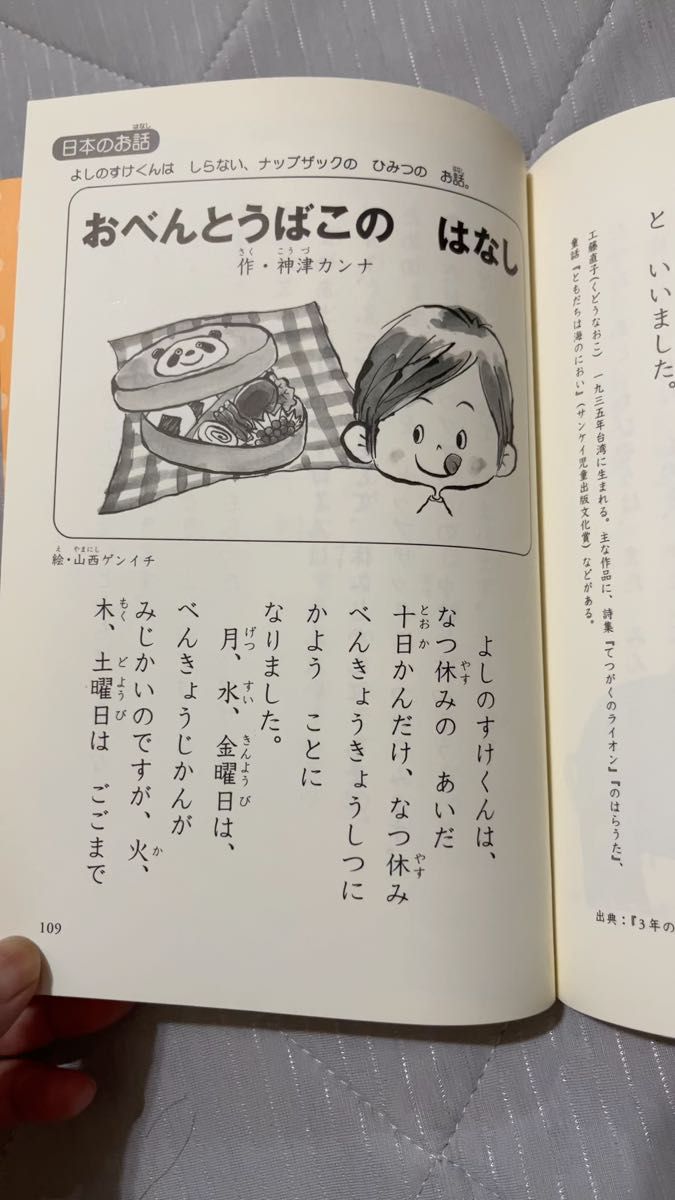 日本のお話
はなし
よしのすけくんは しらない、ナップザックの ひみつの お話。
はなし
おべんとうばこの はなし
さく こうづ
作・神津カンナ
え やまにし
絵・山西ゲンイチ
よしのすけくんは、
なつ休みの あいだ
やす
十日かんだけ、なつ休み
とおか やす
べんきょうきょうしつに
かよう ことに
なりました。
月、水、金曜日は、
げつ すい きんようび
べんきょうじかんが
みじかいのですが、火、
か
木、土曜日は ごごまで
もく どようび
109
と いいました。
工藤直子(くどうなおこ) 一九三五年台湾に生まれる。主な作品に、詩集『てつがくのライオン』『のはらうた』、
童話『ともだちは海のにおい』(サンケイ児童出版文化賞)などがある。
出典：『3年の